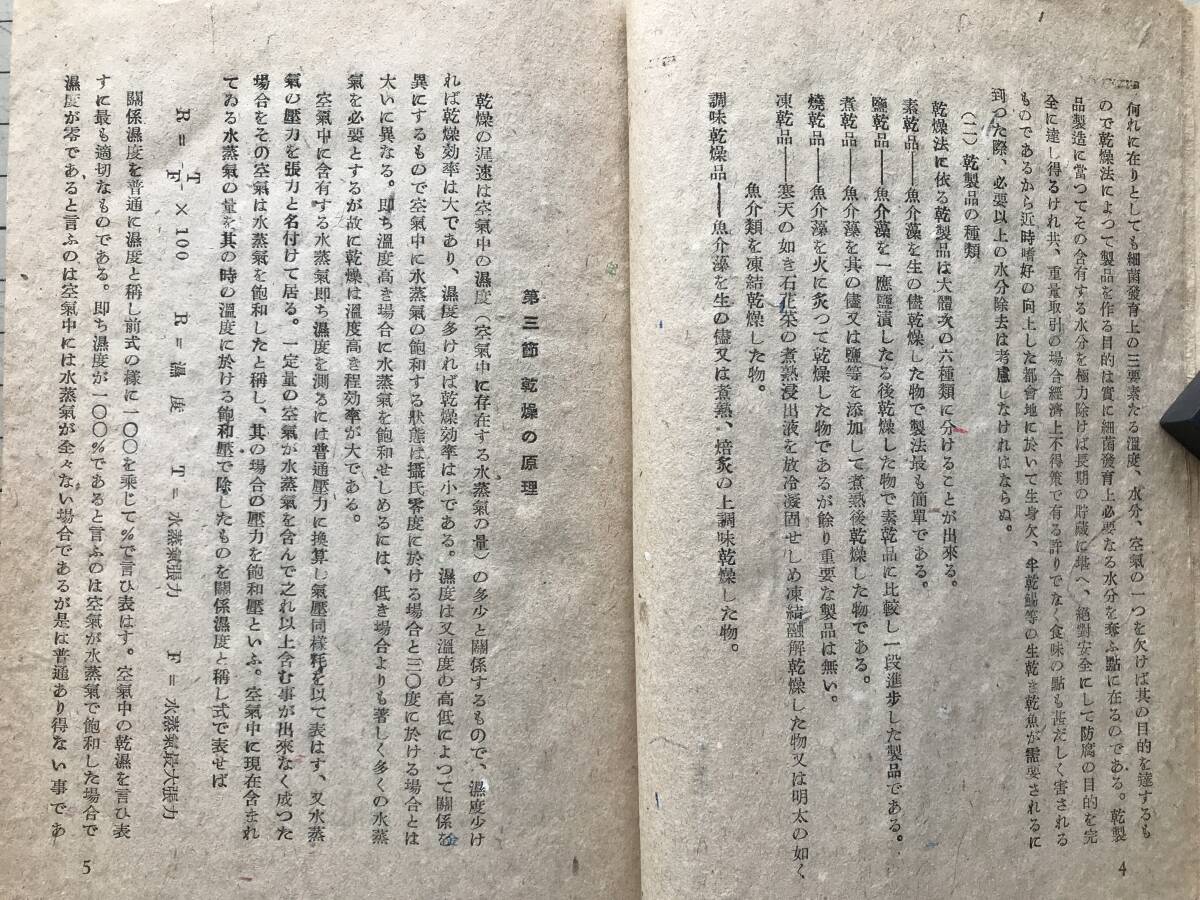 何れに在りとしても細菌發育上の三要素たる溫度、水分、空氣の一つを欠けば其の目的を達するも
ので乾燥法によつて製品を作る目的は實に細菌發育上必要なる水分を奪ふ點に在るのである。乾製
品製造に當つてその含有する水分を極力除けば長期の貯藏に堪へ、絕對安全にして防腐の目的を完
全に達し得るけれ共、重量取引の場合經濟上不得策で有る許りでなく食味の點も甚だしく害される
ものであるから近時嗜好の向上した都會地に於いて生身欠、半乾鰮等の生乾き乾魚が需要されるに
到つた際、必要以上の水分除去は考慮しなければならぬ。
(二)乾製品の種類
乾燥法に依る乾製品は大體次の六種類に分けることが出來る。
素乾品――魚介藻を生の儘乾燥した物で製法最も簡單である。
鹽乾品――魚介藻を一應鹽漬したる後乾燥した物で素乾品に比較し一段進步した製品である。
煮乾品――魚介藻を其の儘又は鹽等を添加して煮熱後乾燥した物である。
燒乾品――魚介藻を火に炙つて乾燥した物であるが餘り重要な製品は無い。
凍乾品――寒天の如き石花菜の煮熱浸出液を放冷凝固せしめ凍結融解乾燥した物又は明太の如く
魚介類を凍結乾燥した物。
調味乾燥品――魚介藻を生の儘又は煮熱、焙炙の上調味乾燥した物。
4
第三節 乾燥の原理
乾燥の遲速は空氣中の濕度(空氣中に存在する水蒸氣の量)の多少と關係するもので、濕度少け
れば乾燥効率は大であり、濕度多ければ乾燥効率は小である。濕度は又溫度の高低によつて關係を
異にするもので空氣中に水蒸氣の飽和する狀態は攝氏零度に於ける場合と三〇度に於ける場合とは
大いに異なる。即ち溫度高き場合に水蒸氣を飽和せしめるには、低き場合よりも著しく多くの水蒸
氣を必要とするが故に乾燥は溫度高き程効率が大である。
空氣中に含有する水蒸氣即ち濕度を測るには普通壓力に換算し氣壓同樣粍を以て表はす、又水蒸
氣の壓力を張力と名付けて居る。一定量の空氣が水蒸氣を含んで之れ以上含む事が出來なく成つた
場合をその空氣は水蒸氣を飽和したと稱し、其の場合の壓力を飽和壓といふ。空氣中に現在含まれ
てゐる水蒸氣の量を其の時の溫度に於ける飽和壓で除したものを關係濕度と稱し式で表せば
R = T/F × 100 R = 溫度 T = 水蒸氣張力 F = 水蒸氣最大張力
關係濕度を普通に濕度と稱し前式の樣に一〇〇を乘じて%で言ひ表はす。空氣中の乾濕を言ひ表
すに最も適切なものである。即ち濕度が一〇〇%であると言ふのは空氣が水蒸氣で飽和した場合で
濕度が零であると言ふのは空氣中には水蒸氣が全々ない場合であるが是は普通あり得ない事であ
5